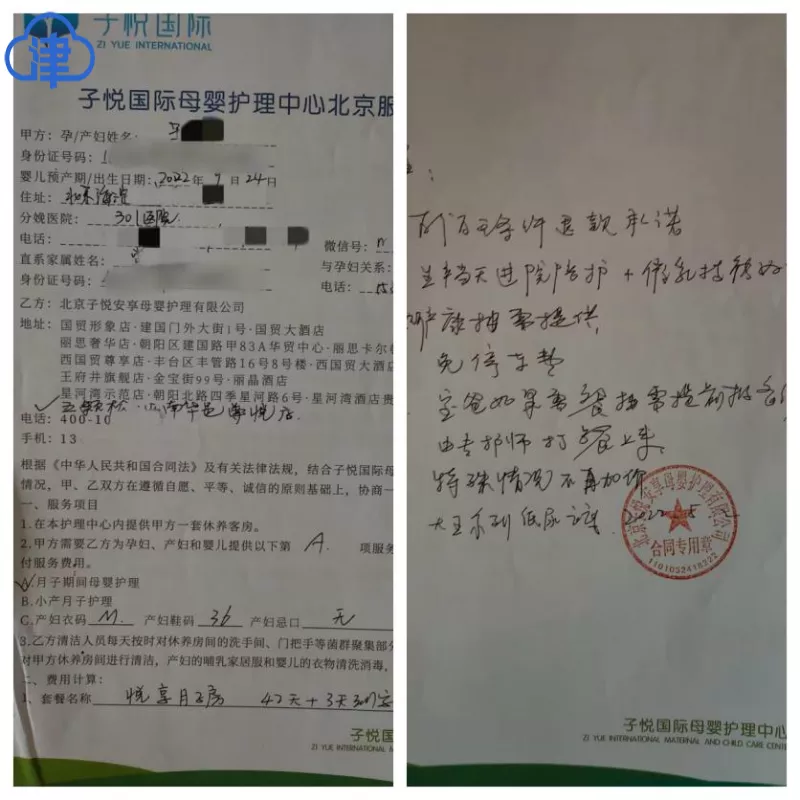 津
子悦国际
ZI YUE INTERNATIONAL
子悦国际母婴护理中心北京服
甲方：孕/产妇姓名：
身份证号码：
婴儿预产期/出生日期：2022年9月24日
住址：北京海淀
分娩医院：301医院
电话：
微信号：
直系家属姓名：
与孕妇关系：
身份证号码：
电话：
乙方：北京子悦安享母婴护理有限公司
地址：国贸形象店·建国门外大街1号·国贸大酒店
丽思奢华店·朝阳区建国路甲83A华贸中心·丽思卡尔
西国贸尊享店·丰台区丰管路16号8号楼·西国贸大酒店
王府井旗舰店·金宝街99号·丽晶酒店
星河湾示范店·朝阳北路四季星河路6号·星河湾酒店贵
五颗松
店
电话：400-10
手机：13
根据《中华人民共和国合同法》及有关法律法规，结合子悦国际母
情况，甲、乙双方在遵循自愿、平等、诚信的原则基础上，协商一
一、服务项目
1.在本护理中心内提供甲方一套休养客房。
2.甲方需要乙方为孕妇、产妇和婴儿提供以下第 A 项服
付服务费用。
A.月子期间母婴护理
B.小产月子护理
C.产妇衣码 M 产妇鞋码 36 产妇忌口 无
3.乙方清洁人员每天按时对休养房间的洗手间、门把手等菌群聚集部
对甲方休养房间进行清洁，产妇的哺乳家居服和婴儿的衣物清洗消毒，
二、费用计算：
1、套餐名称 悦享月子房 42天+3天
子悦国
ZI YUE INTERNATIONAL MA
：
退款承诺
生产当天进院陪护+催乳
产康按需提供
免停车费
宝爸如果需餐按需提前报备
由专护师打餐上来
特殊情况不再加价
2022.5
北京子悦安享母婴护理有限公司
合同专用章
子悦国际母婴护理中心
ZI YUE INTERNATIONAL MATERNAL AND CHILD CARE CENTE